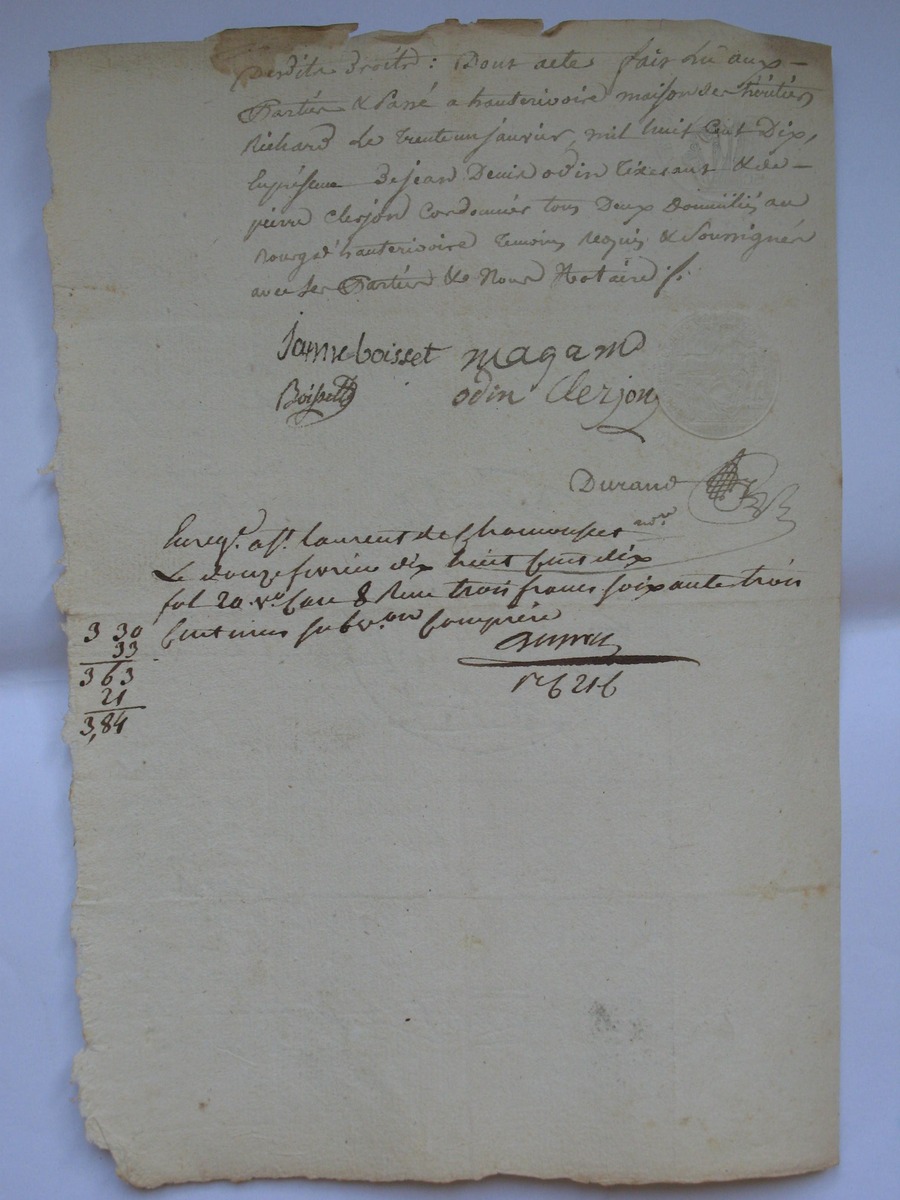 desdits droits : Dont acte fait lu aux
Parties & Passé a hauterivoire maison des héritiers
Richard le trente un janvier, mil huit Cent Dix,
En présence de jean Denis odin tixerant & de
pierre clerjon Cordonnier tous Deux Domiciliés au
Bourg d'hauterivoire temoins requis & Soussignés
avec les Parties & Nous Notaire /.
Janne boisset magand
Boisset
odin Clerjon
Durand
nre
Enregt. a St. laurent de Chamousset
Le douze fevrier dix huit Cent dix
fol 20 vo. Case 8 Reçu trois francs soixante trois
Centimes subvon Comprise
3 30
33
363
21
3,84